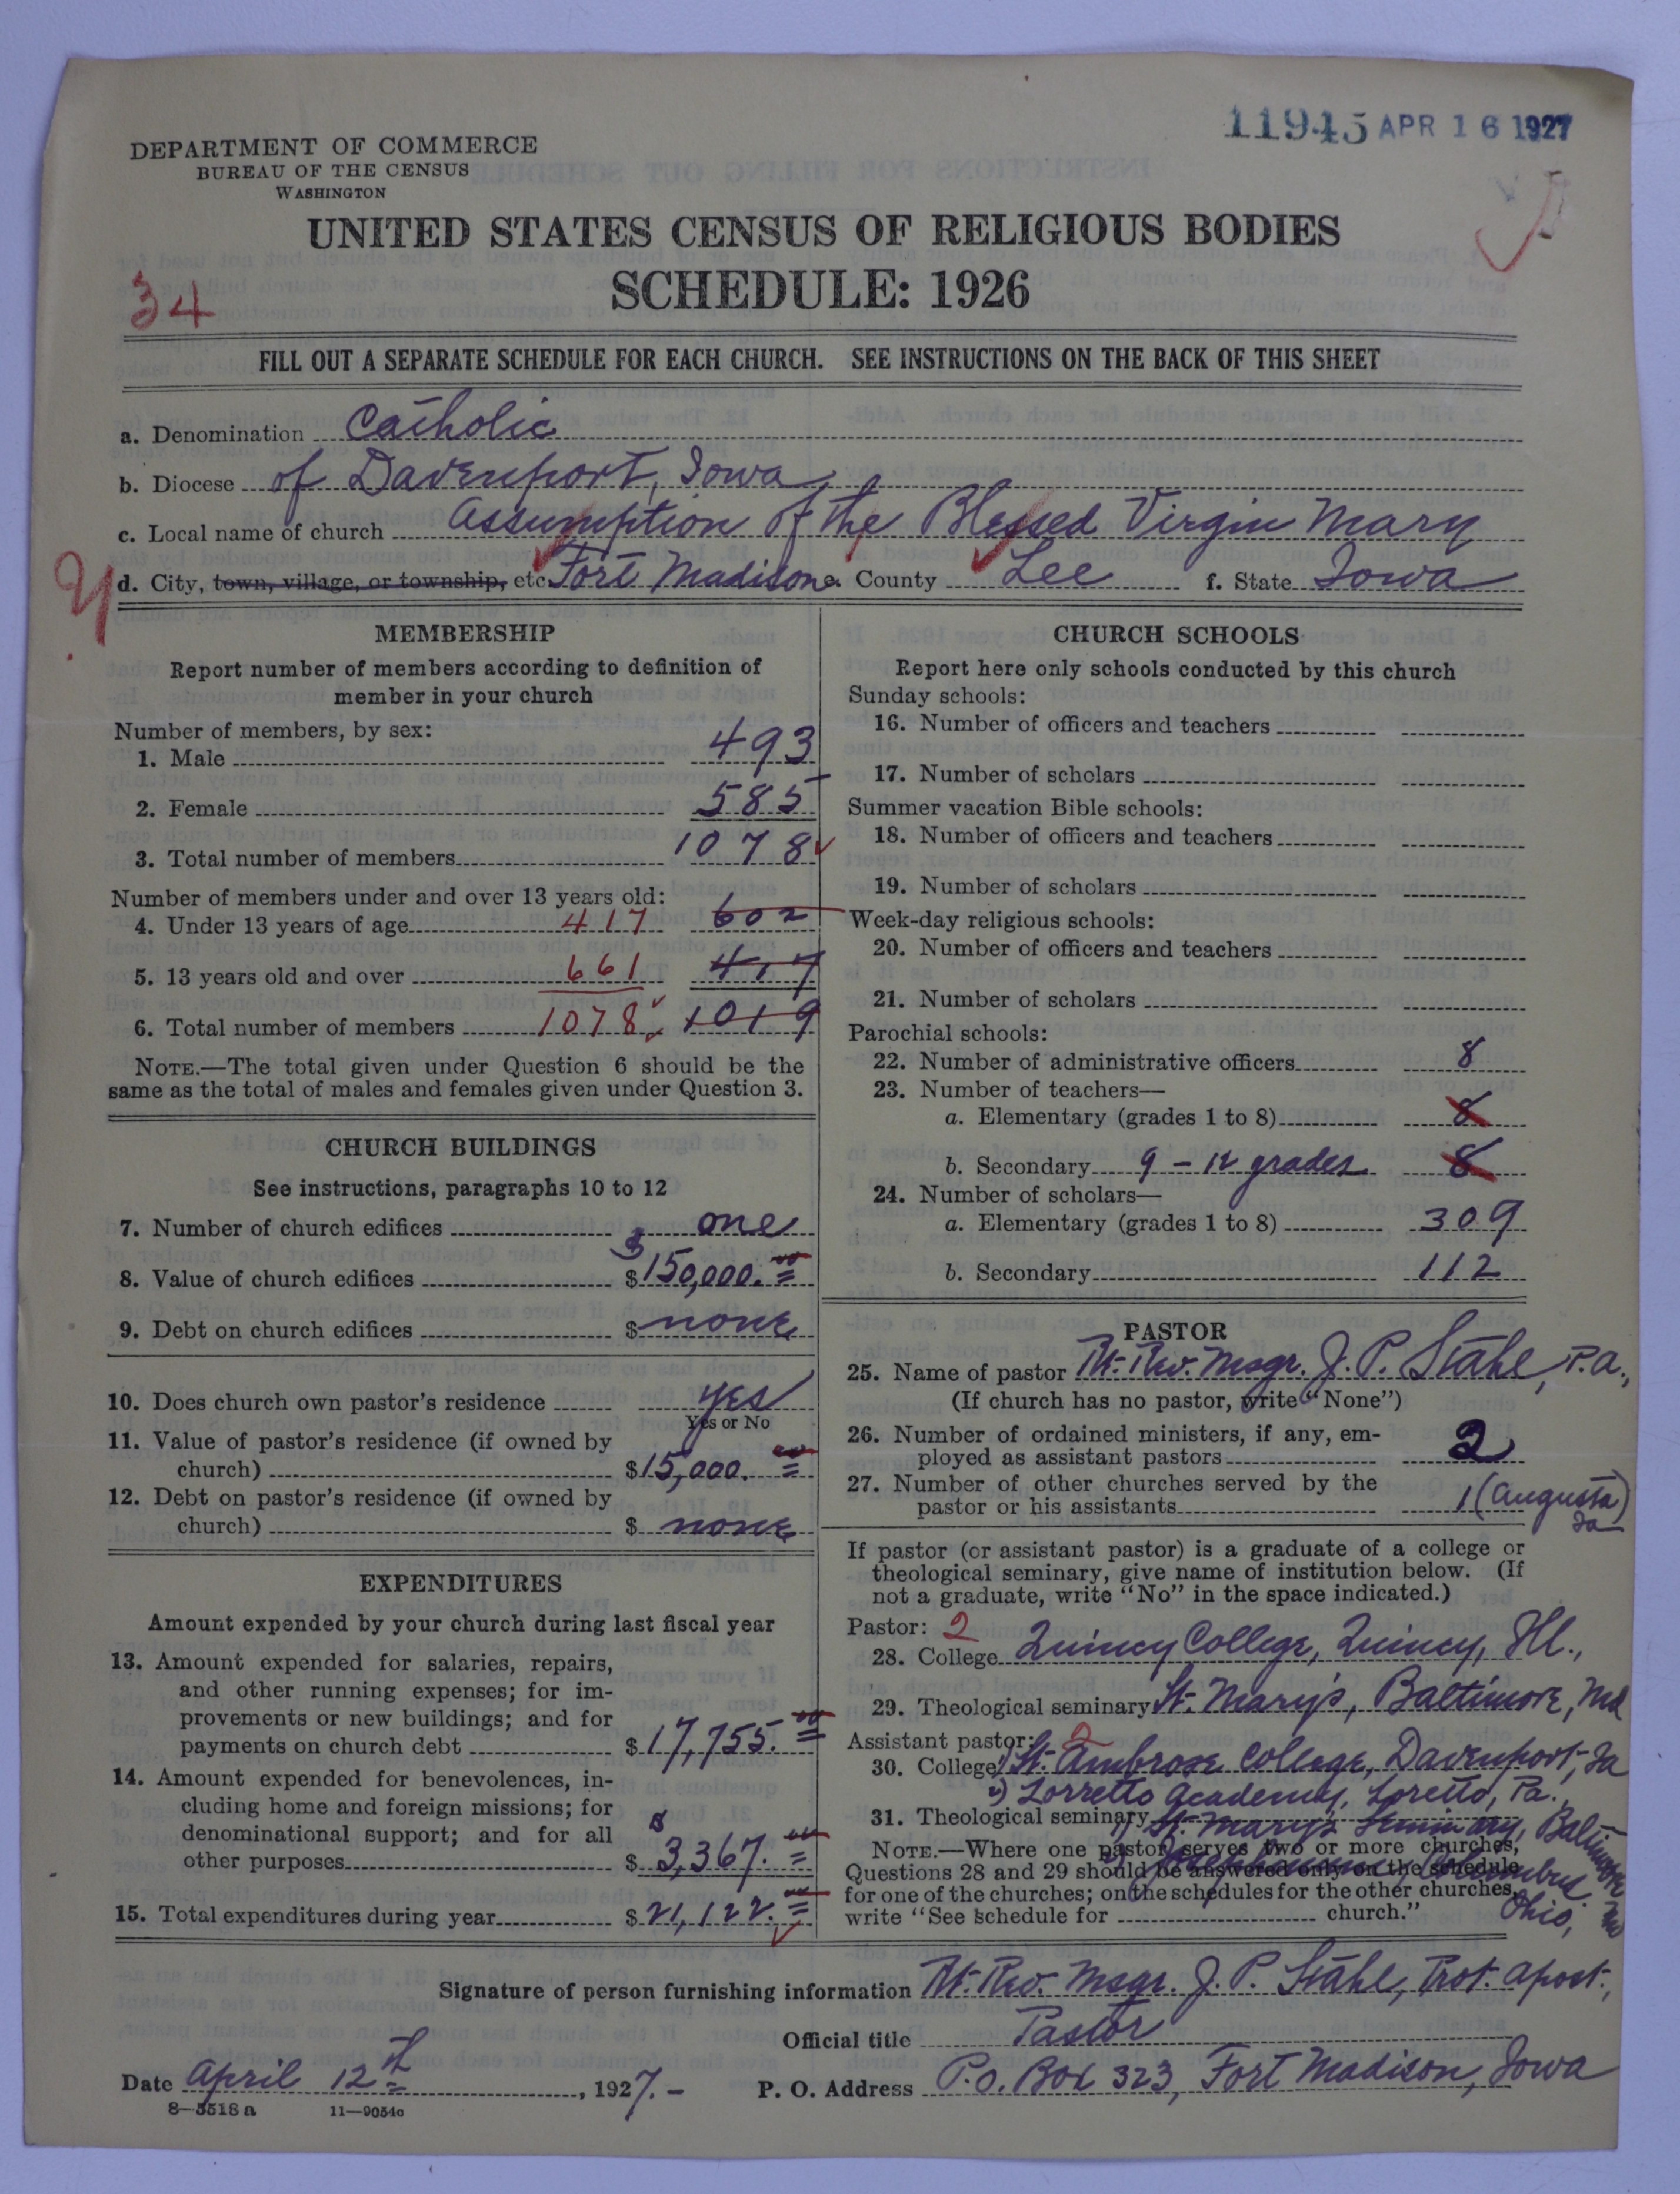 11945 APR 16 1927
DEPARTMENT OF COMMERCE
BUREAU OF THE CENSUS
WASHINGTON
UNITED STATES CENSUS OF RELIGIOUS BODIES
SCHEDULE: 1926
34
FILL OUT A SEPARATE SCHEDULE FOR EACH CHURCH. SEE INSTRUCTIONS ON THE BACK OF THIS SHEET
a. Denomination Catholic
b. Diocese of Davenport, Iowa
c. Local name of church Assumption of the Blessed Virgin Mary
d. City, town, village, or township, etc. Fort Madison e. County Lee f. State Iowa
MEMBERSHIP
Report number of members according to definition of
member in your church
Number of members, by sex:
1. Male 493
2. Female 585
3. Total number of members 1078
Number of members under and over 13 years old:
4. Under 13 years of age 417 602
5. 13 years old and over 661 417
6. Total number of members 1078 1019
NOTE.—The total given under Question 6 should be the
same as the total of males and females given under Question 3.
CHURCH BUILDINGS
See instructions, paragraphs 10 to 12
7. Number of church edifices one
8. Value of church edifices $150,000.00
9. Debt on church edifices $ none
10. Does church own pastor's residence yes
Yes or No
11. Value of pastor's residence (if owned by
church) $15,000.00
12. Debt on pastor's residence (if owned by
church) $ none
EXPENDITURES
Amount expended by your church during last fiscal year
13. Amount expended for salaries, repairs,
and other running expenses; for im-
provements or new buildings; and for
payments on church debt $17,755.00
14. Amount expended for benevolences, in-
cluding home and foreign missions; for
denominational support; and for all
other purposes $ 3,367.00
15. Total expenditures during year $ 21,122.00
CHURCH SCHOOLS
Report here only schools conducted by this church
Sunday schools:
16. Number of officers and teachers
17. Number of scholars
Summer vacation Bible schools:
18. Number of officers and teachers
19. Number of scholars
Week-day religious schools:
20. Number of officers and teachers
21. Number of scholars
Parochial schools:
22. Number of administrative officers 8
23. Number of teachers—
a. Elementary (grades 1 to 8) 8
b. Secondary 9 - 12 grades 8
24. Number of scholars—
a. Elementary (grades 1 to 8) 309
b. Secondary 112
PASTOR
25. Name of pastor Rt. Rev. Msgr. J. P. Stahl, P.A.,
(If church has no pastor, write "None")
26. Number of ordained ministers, if any, em-
ployed as assistant pastors 2
27. Number of other churches served by the
pastor or his assistants 1 (Augusta)
Ia
If pastor (or assistant pastor) is a graduate of a college or
theological seminary, give name of institution below. (If
not a graduate, write "No" in the space indicated.)
Pastor: 2
28. College Quincy College, Quincy, Ill.,
29. Theological seminary St. Mary's, Baltimore, Md
Assistant pastor: 2
30. College 1) St. Ambrose College, Davenport, Ia
2) Lorretto Academy, Loretto, Pa.
31. Theological seminary 1) St. Mary's Seminary, Baltimore Md
2) Josephinum, Columbus Ohio,
NOTE.—Where one pastor serves two or more churches,
Questions 28 and 29 should be answered only on the schedule
for one of the churches; on the schedules for the other churches,
write "See schedule for church."
Signature of person furnishing information Rt. Rev. Msgr. J. P. Stahl, Prot. Apost.,
Official title Pastor
Date April 12th, 1927. - P. O. Address P.O. Box 323, Fort Madison, Iowa
8—5518 a 11—9054c